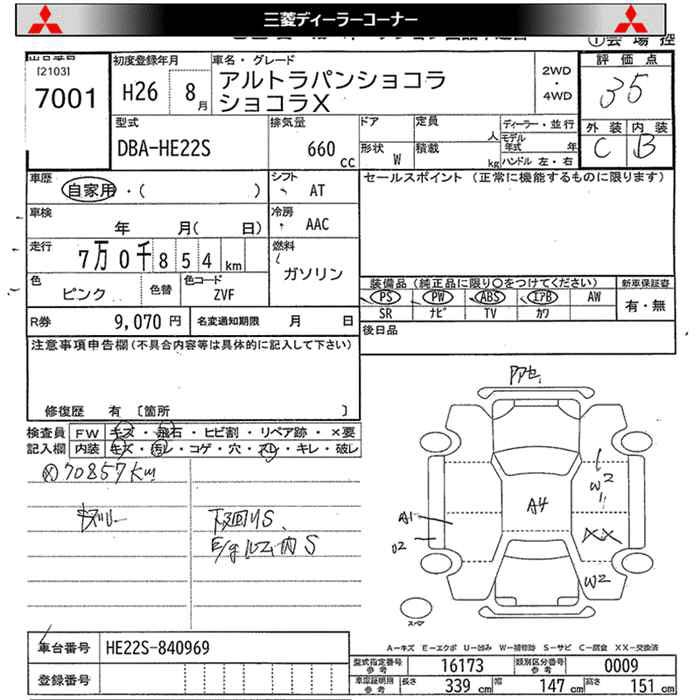 三菱ディーラーコーナー
[2103]
7001
初度登録年月
H26 8月
車名・グレード
アルトラパンショコラ
ショコラX
2WD
・
4WD
評価点
35
外装 内装
C B
型式
DBA-HE22S
排気量
660 cc
ドア
形状 W
定員 人
積載 kg
ディーラー・並行
モデル年式 年
ハンドル 左・右
車歴
自家用・( )
シフト
AT
セールスポイント (正常に機能するものに限ります)
車検
年 月( 日)
冷房
AAC
走行
7万0千854km
燃料
ガソリン
色
ピンク
色替
色コード
ZVF
装備品 (純正品に限り○をつけてください)
新車保証書
PS PW ABS エアB AW
有・無
SR ナビ TV カワ
R券 9,070円
名変通知期限 月 日
後日品
注意事項申告欄 (不具合内容等は具体的に記入して下さい)
修復歴 有 [箇所 ]
検査員
記入欄
FW キズ・飛石・ヒビ割・リペア跡・×要
内装 キズ・汚レ・コゲ・穴・スレ・キレ・破レ
70857km
下回りS、
E/gルーム内S
A4
A1
U2
W2
XX
W2
A-キズ E-エクボ U-凹み W-補修跡 S-サビ C-腐食 XX-交換済
車台番号 HE22S-840969
登録番号
型式指定番号
参考
16173
類別区分番号
参考
0009
車庫証明用
参考
長さ 339 cm 幅 147 cm 高さ 151 cm